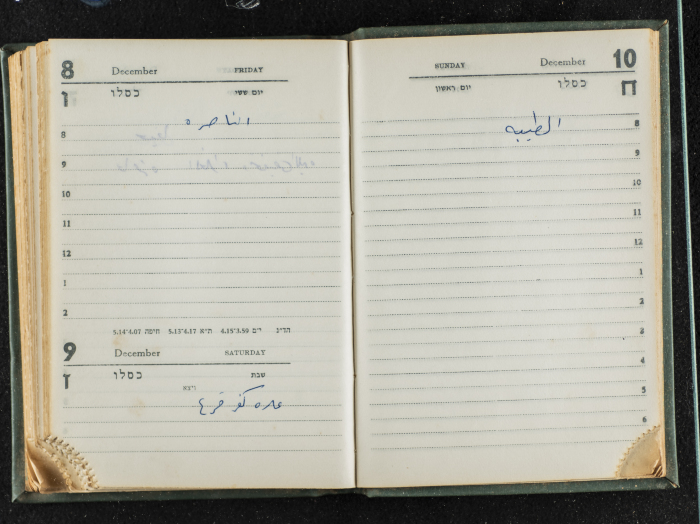 8 December FRIDAY
ו כסלו יום ששי
الناصره
8
9
10
11
12
1
2
הדי״נ י־ם 4.15־3.59 ת״א 5.13־4.17 חיפה 5.14־4.07
9 December SATURDAY
ז כסלו שבת
ויצא
عاره كفر قرع
SUNDAY December 10
יום ראשון כסלו ח
الطيبه
8
9
10
11
12
1
2
3
4
5
6